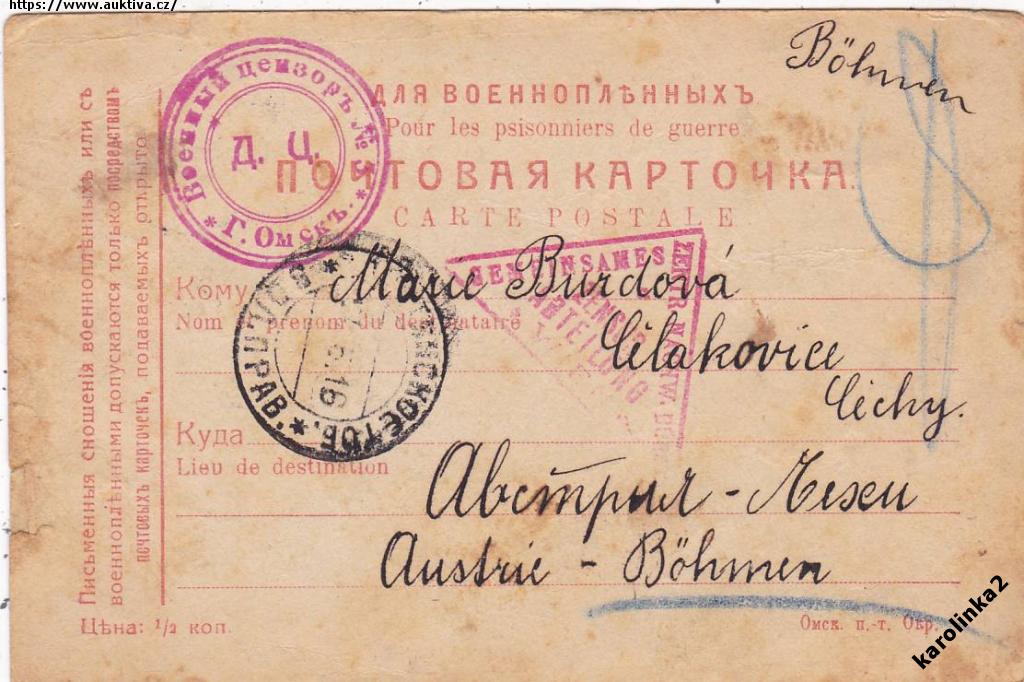 https://www.auktiva.cz/
Böhmen
Военный цензоръ №
Д. Ц.
Г. Омскъ.
ДЛЯ ВОЕННОПЛѢННЫХЪ
Pour les psisonniers de guerre
ПОЧТОВАЯ КАРТОЧКА.
CARTE POSTALE
GEMEINSAMES
ZENSUR
ABTEILUNG
Кому
Marie Burdová
Nom prenom du destinataire
Čelakovice
Čechy.
Куда
Lieu de destination
Австрия - Чехи
Austrie - Böhmen
Письменныя сношенія военноплѣнныхъ или съ
военноплѣнными допускаются только посредствомъ
почтовыхъ карточекъ, подаваемыхъ открыто.
Цѣна: 1/2 коп.
Омск. п.-т. Окр.
karolinka2